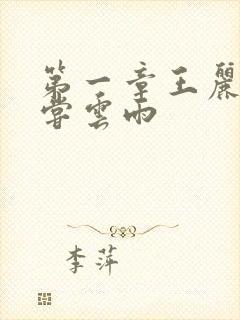 第一章王麗
嘗雲雨
李萍